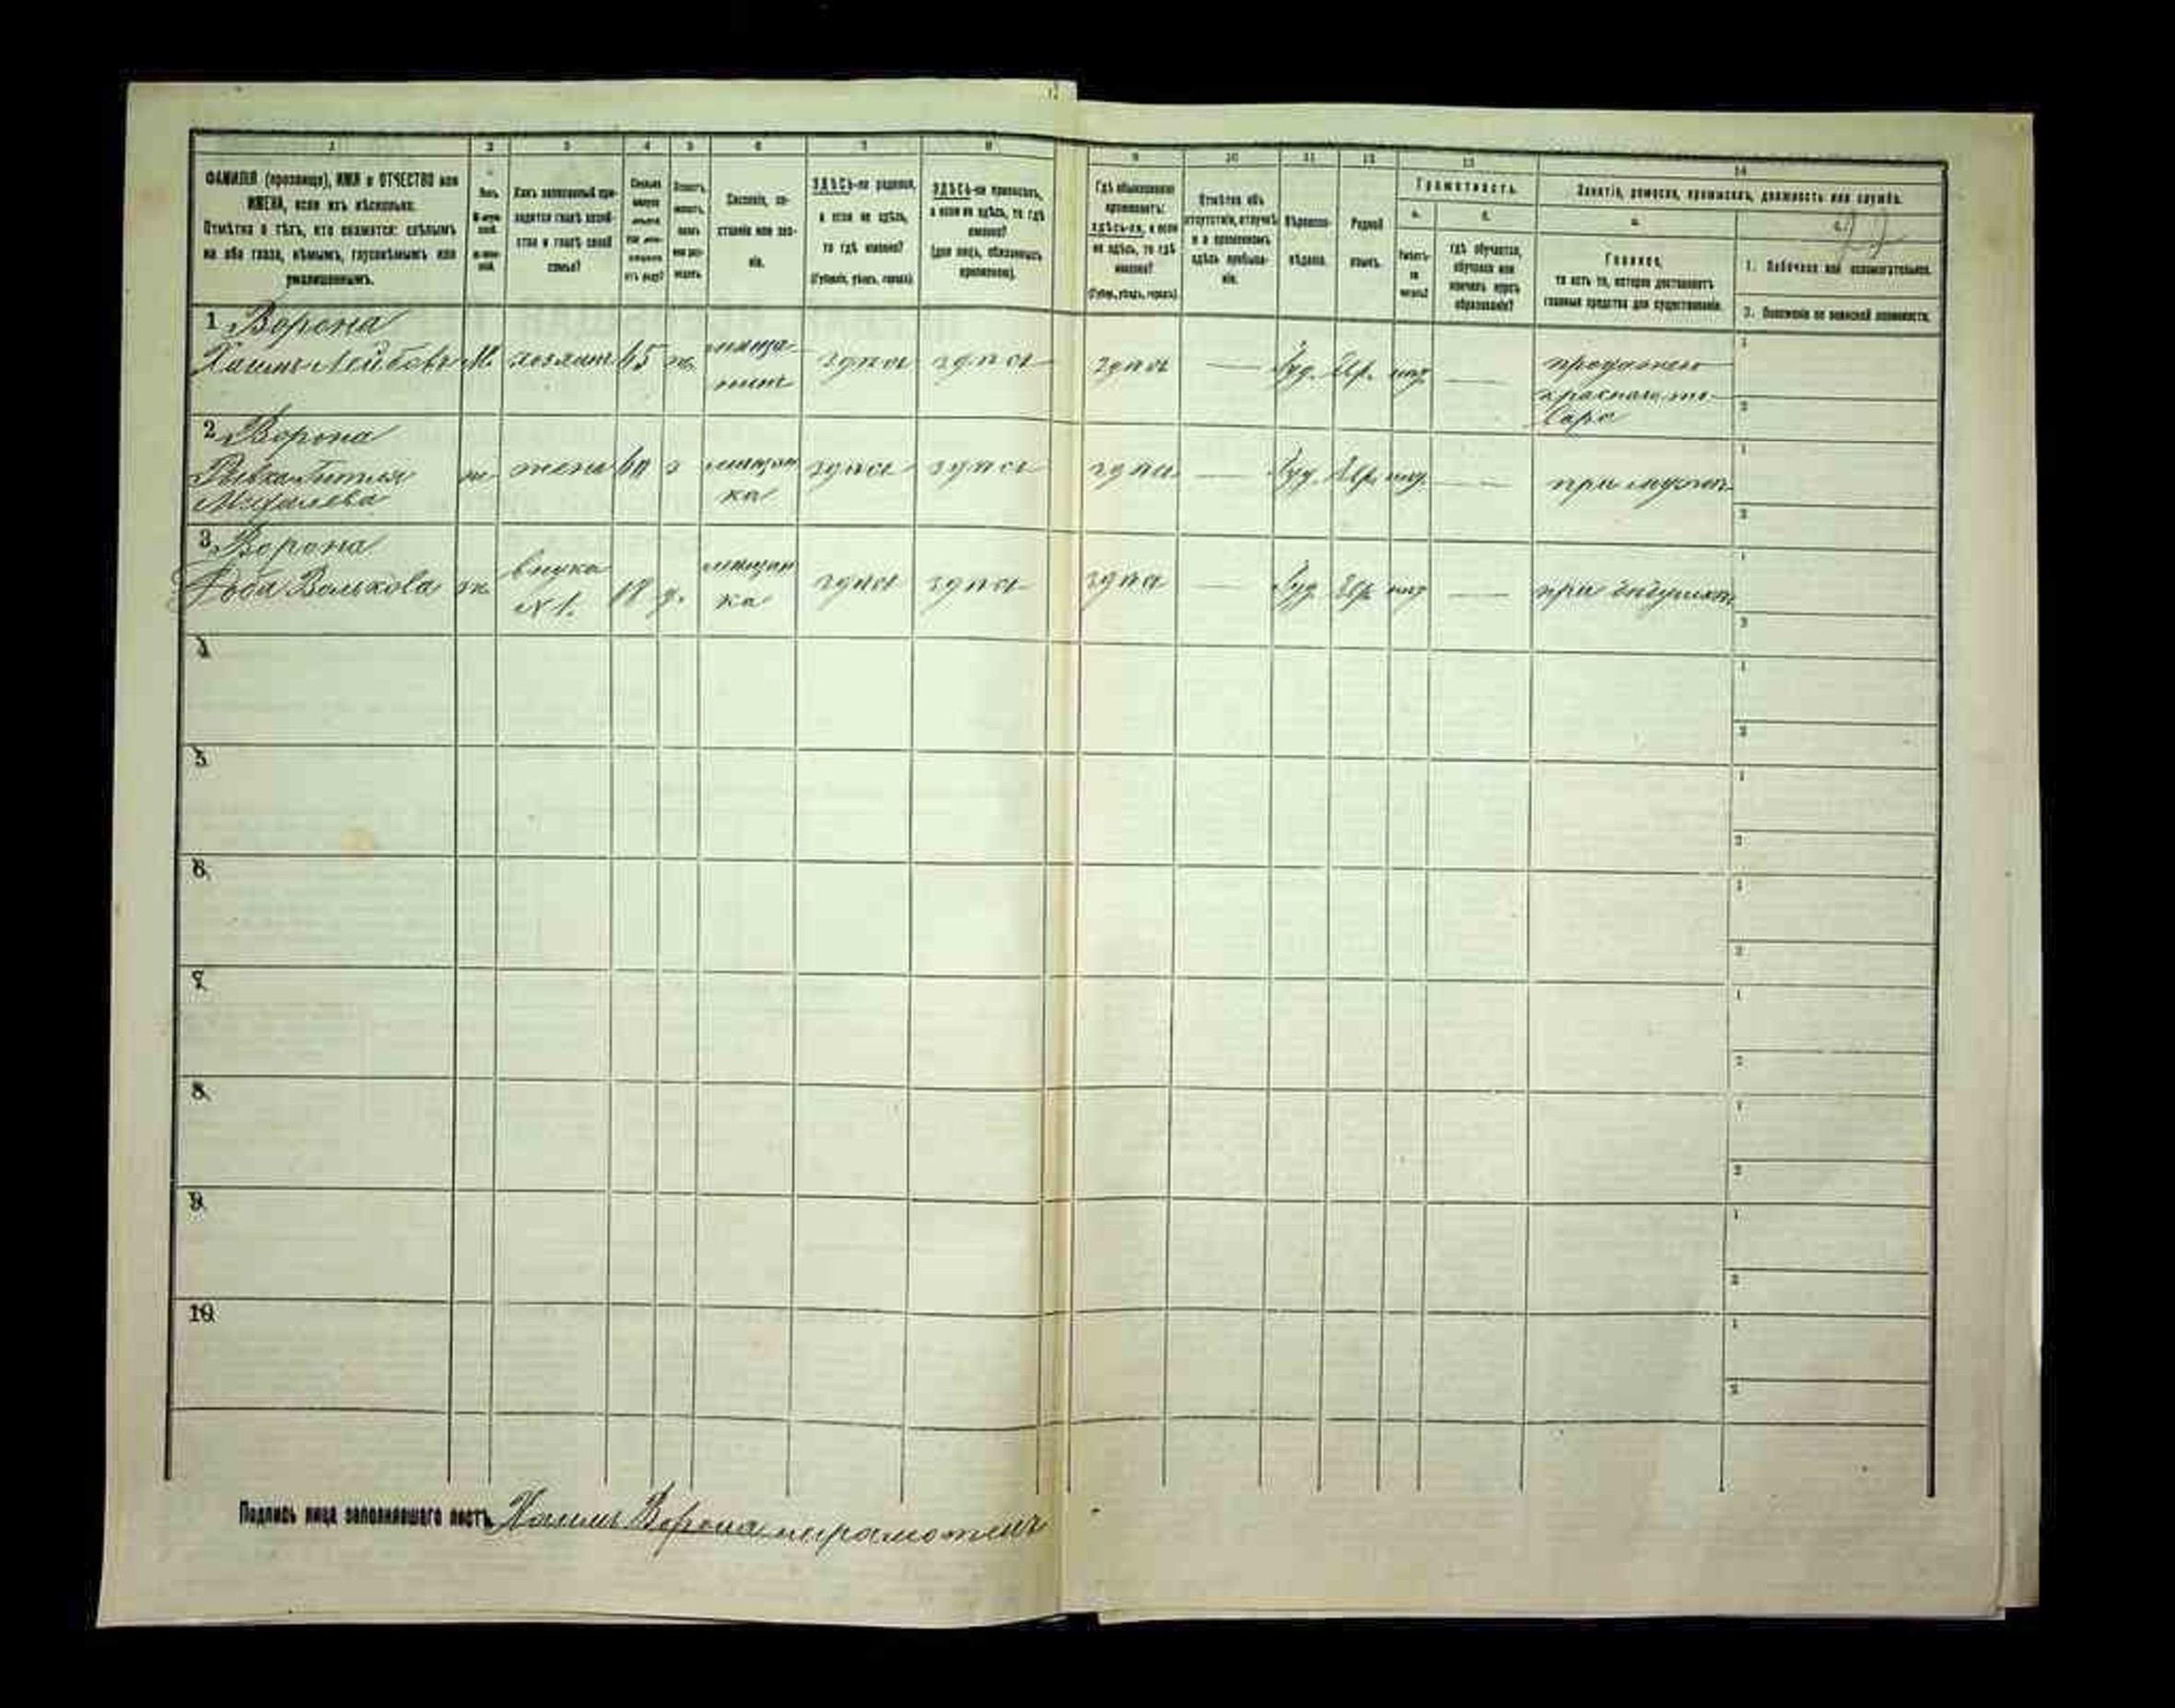 1 2 3 4 5 6 7 8 9 10 11 12 13 14
ФАМИЛІЯ (прозвище), ИМЯ и ОТЧЕСТВО или
ИМЕНА, если ихъ нѣсколько.
Отмѣтка о тѣхъ, кто окажется: слѣпымъ
на оба глаза, нѣмымъ, глухонѣмымъ или
умалишеннымъ.
Полъ.
Какъ записанный при-
ходится главѣ хозяй-
ства и главѣ своей
семьи?
Сословіе, со-
стояніе или зва-
ніе.
ЗДѢСЬ-ли родился,
а если не здѣсь,
то гдѣ именно?
(Губернія, уѣздъ, городъ).
ЗДѢСЬ-ли приписанъ,
а если не здѣсь, то гдѣ
именно?
(для лицъ, обязанныхъ
припискою).
Гдѣ обыкновенно
проживаетъ:
здѣсь-ли, а если
не здѣсь, то гдѣ
именно?
(Губер., уѣздъ, городъ)
Отмѣтка объ
отсутствіи, отлучкѣ
и о временномъ
здѣсь пребыва-
ніи.
Вѣроиспо-
вѣданіе.
Родной
языкъ.
Грамотность.
а.
Умѣетъ-
ли
читать?
б.
гдѣ обучается,
обучался или
кончилъ курсъ
образованія?
Занятіе, ремесло, промыселъ, должность или служба.
а.
Главное,
то есть то, которое доставляетъ
главныя средства для существованія.
1. Побочное или вспомогательное.
2. Положеніе по воинской повинности.
1 Ворона
Хаимъ Лейбовъ М. хозяинъ 65 ж. мѣща-
нинъ здѣсь здѣсь здѣсь — Іуд. Евр. нѣтъ — продажею
краснаго то-
вара
2 Ворона
Рывка
жена 60 з мѣщан
ка здѣсь здѣсь здѣсь — Іуд. Евр. нѣтъ — при мужѣ
3 Ворона
Доба Волькова ж. внука
№ 1. 18 д. мѣщан
ка здѣсь здѣсь здѣсь — Іуд. Евр. нѣтъ — при дѣдушкѣ
4
5
6
7
8
9
10
Подпись лица заполнявшаго листъ Хаимъ Ворона неграмотенъ